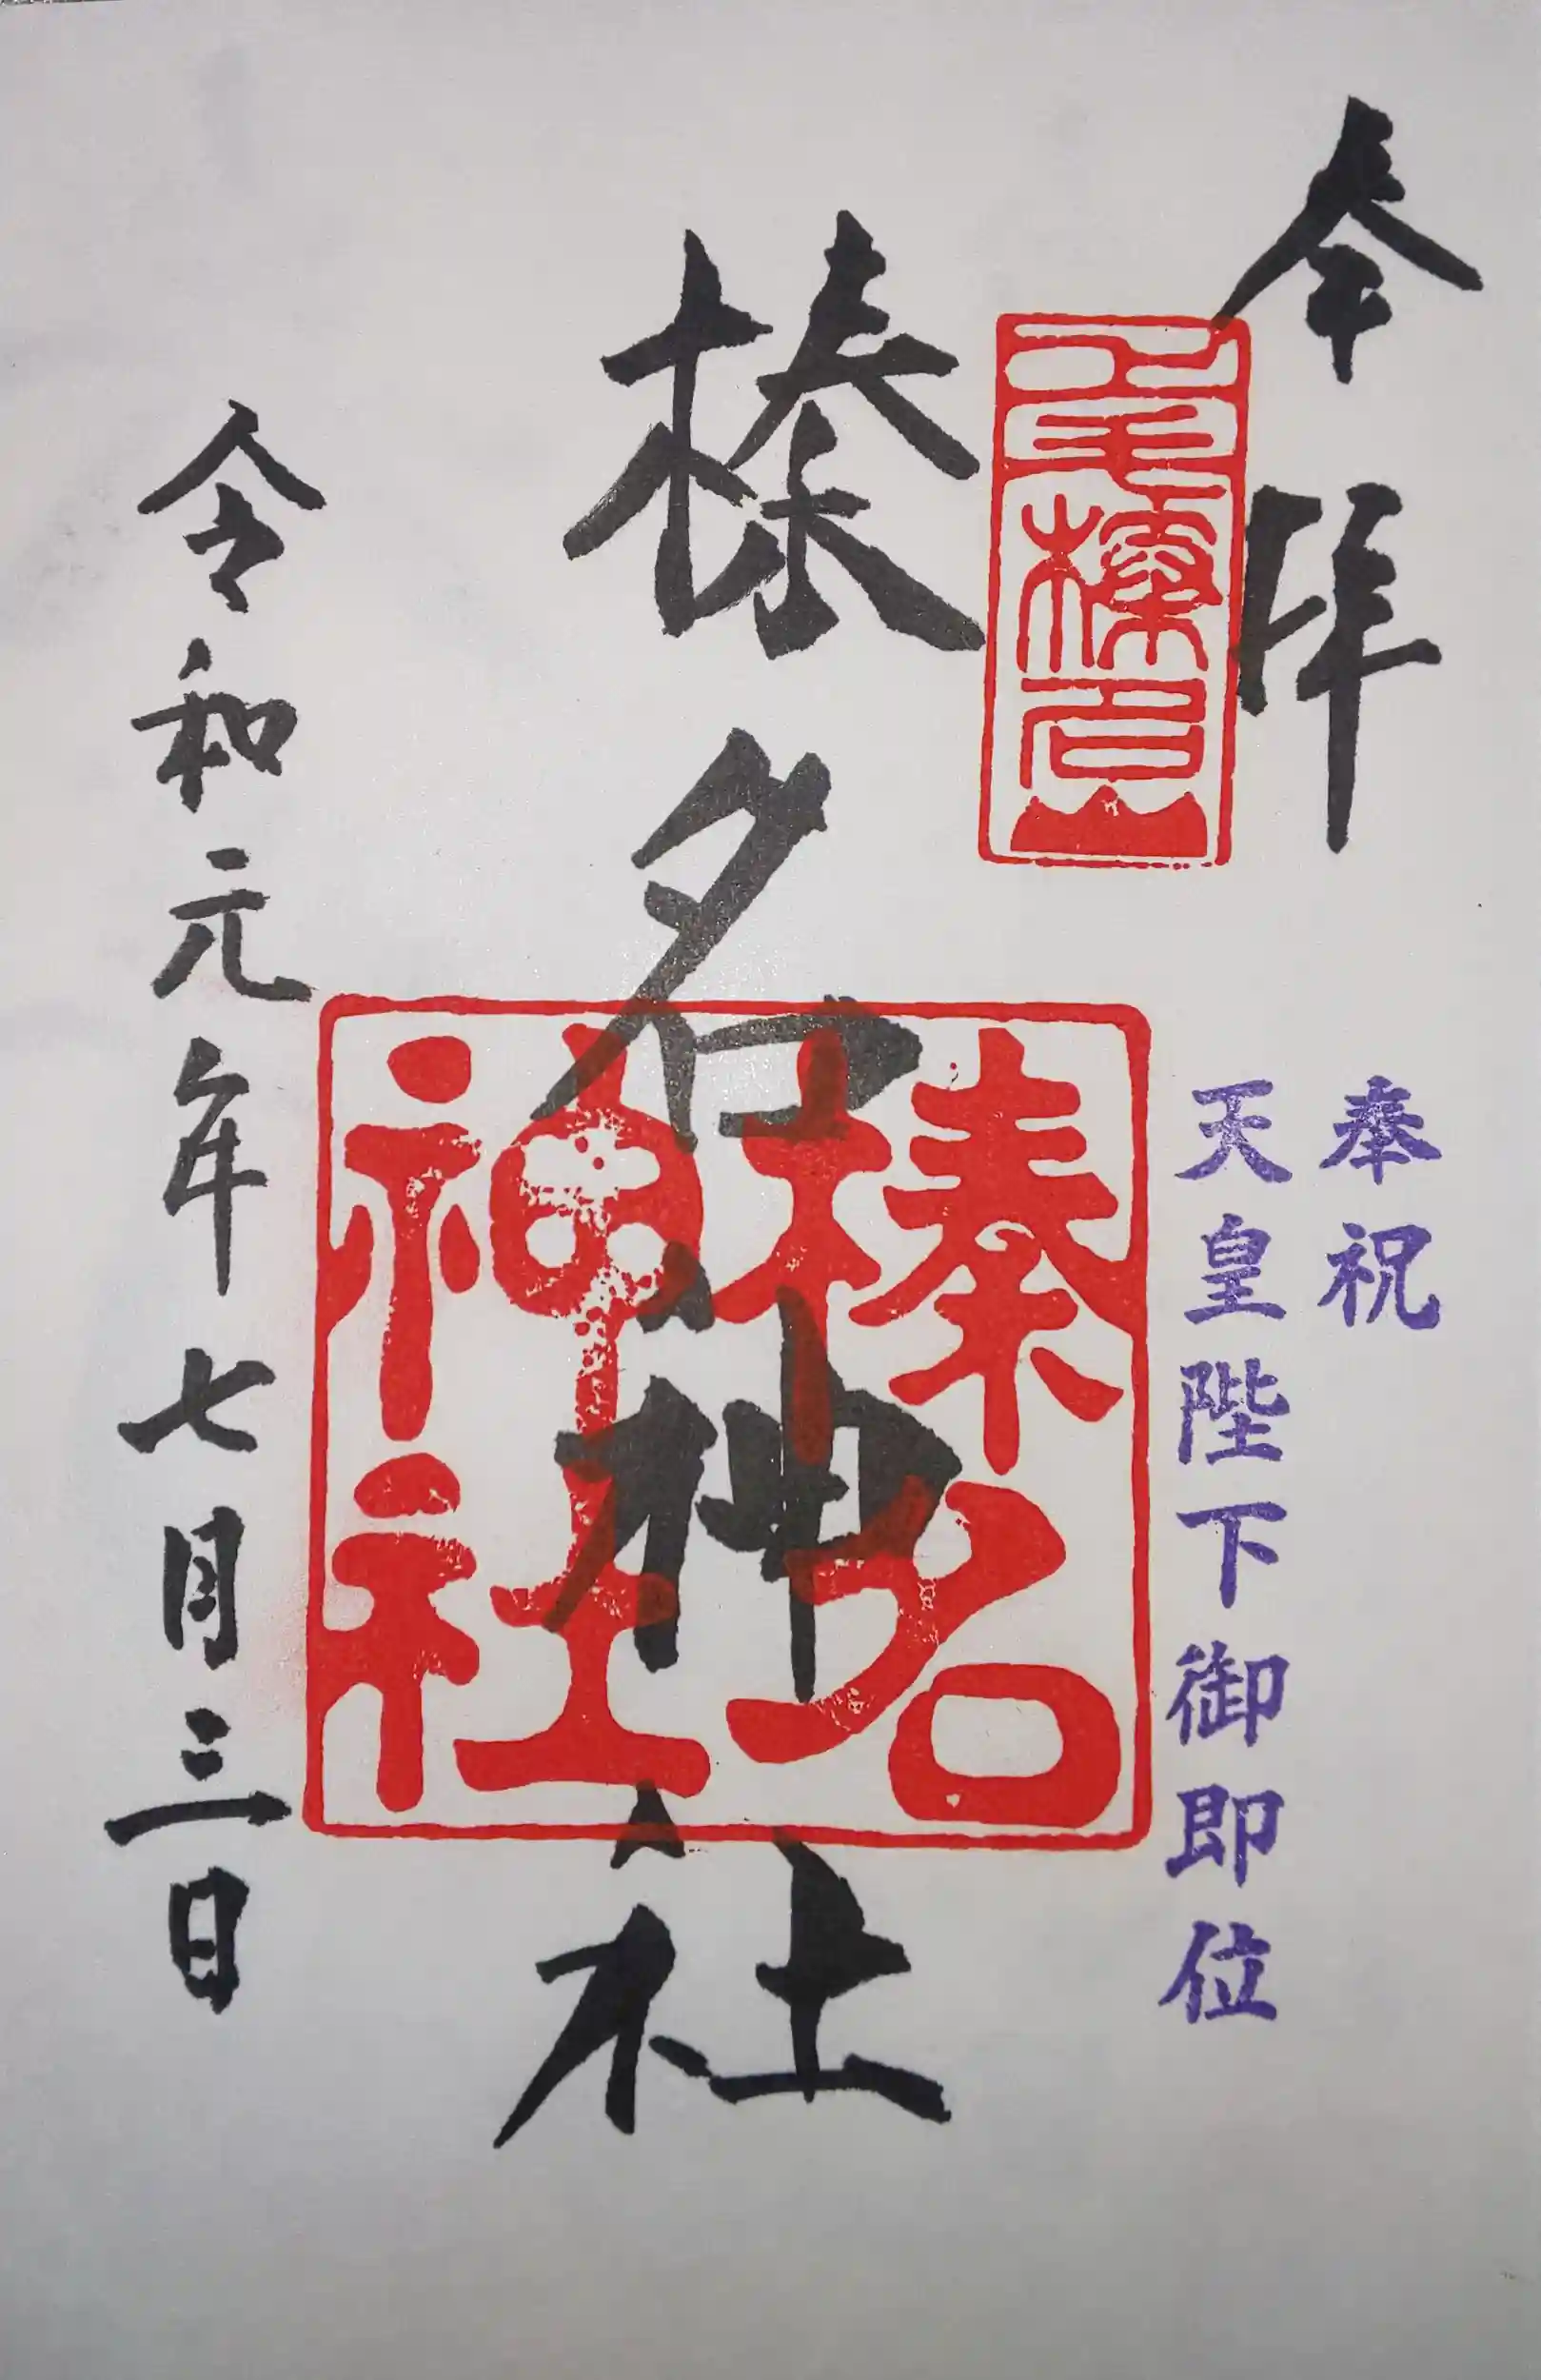 奉拝
奉祝
天皇陛下御即位
榛名山
榛名神社
榛名
神社
令和元年七月三日